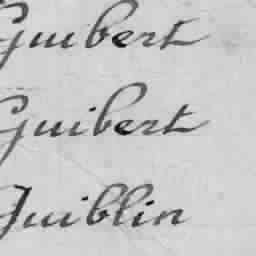 Guibert
Guibert
Guiblin